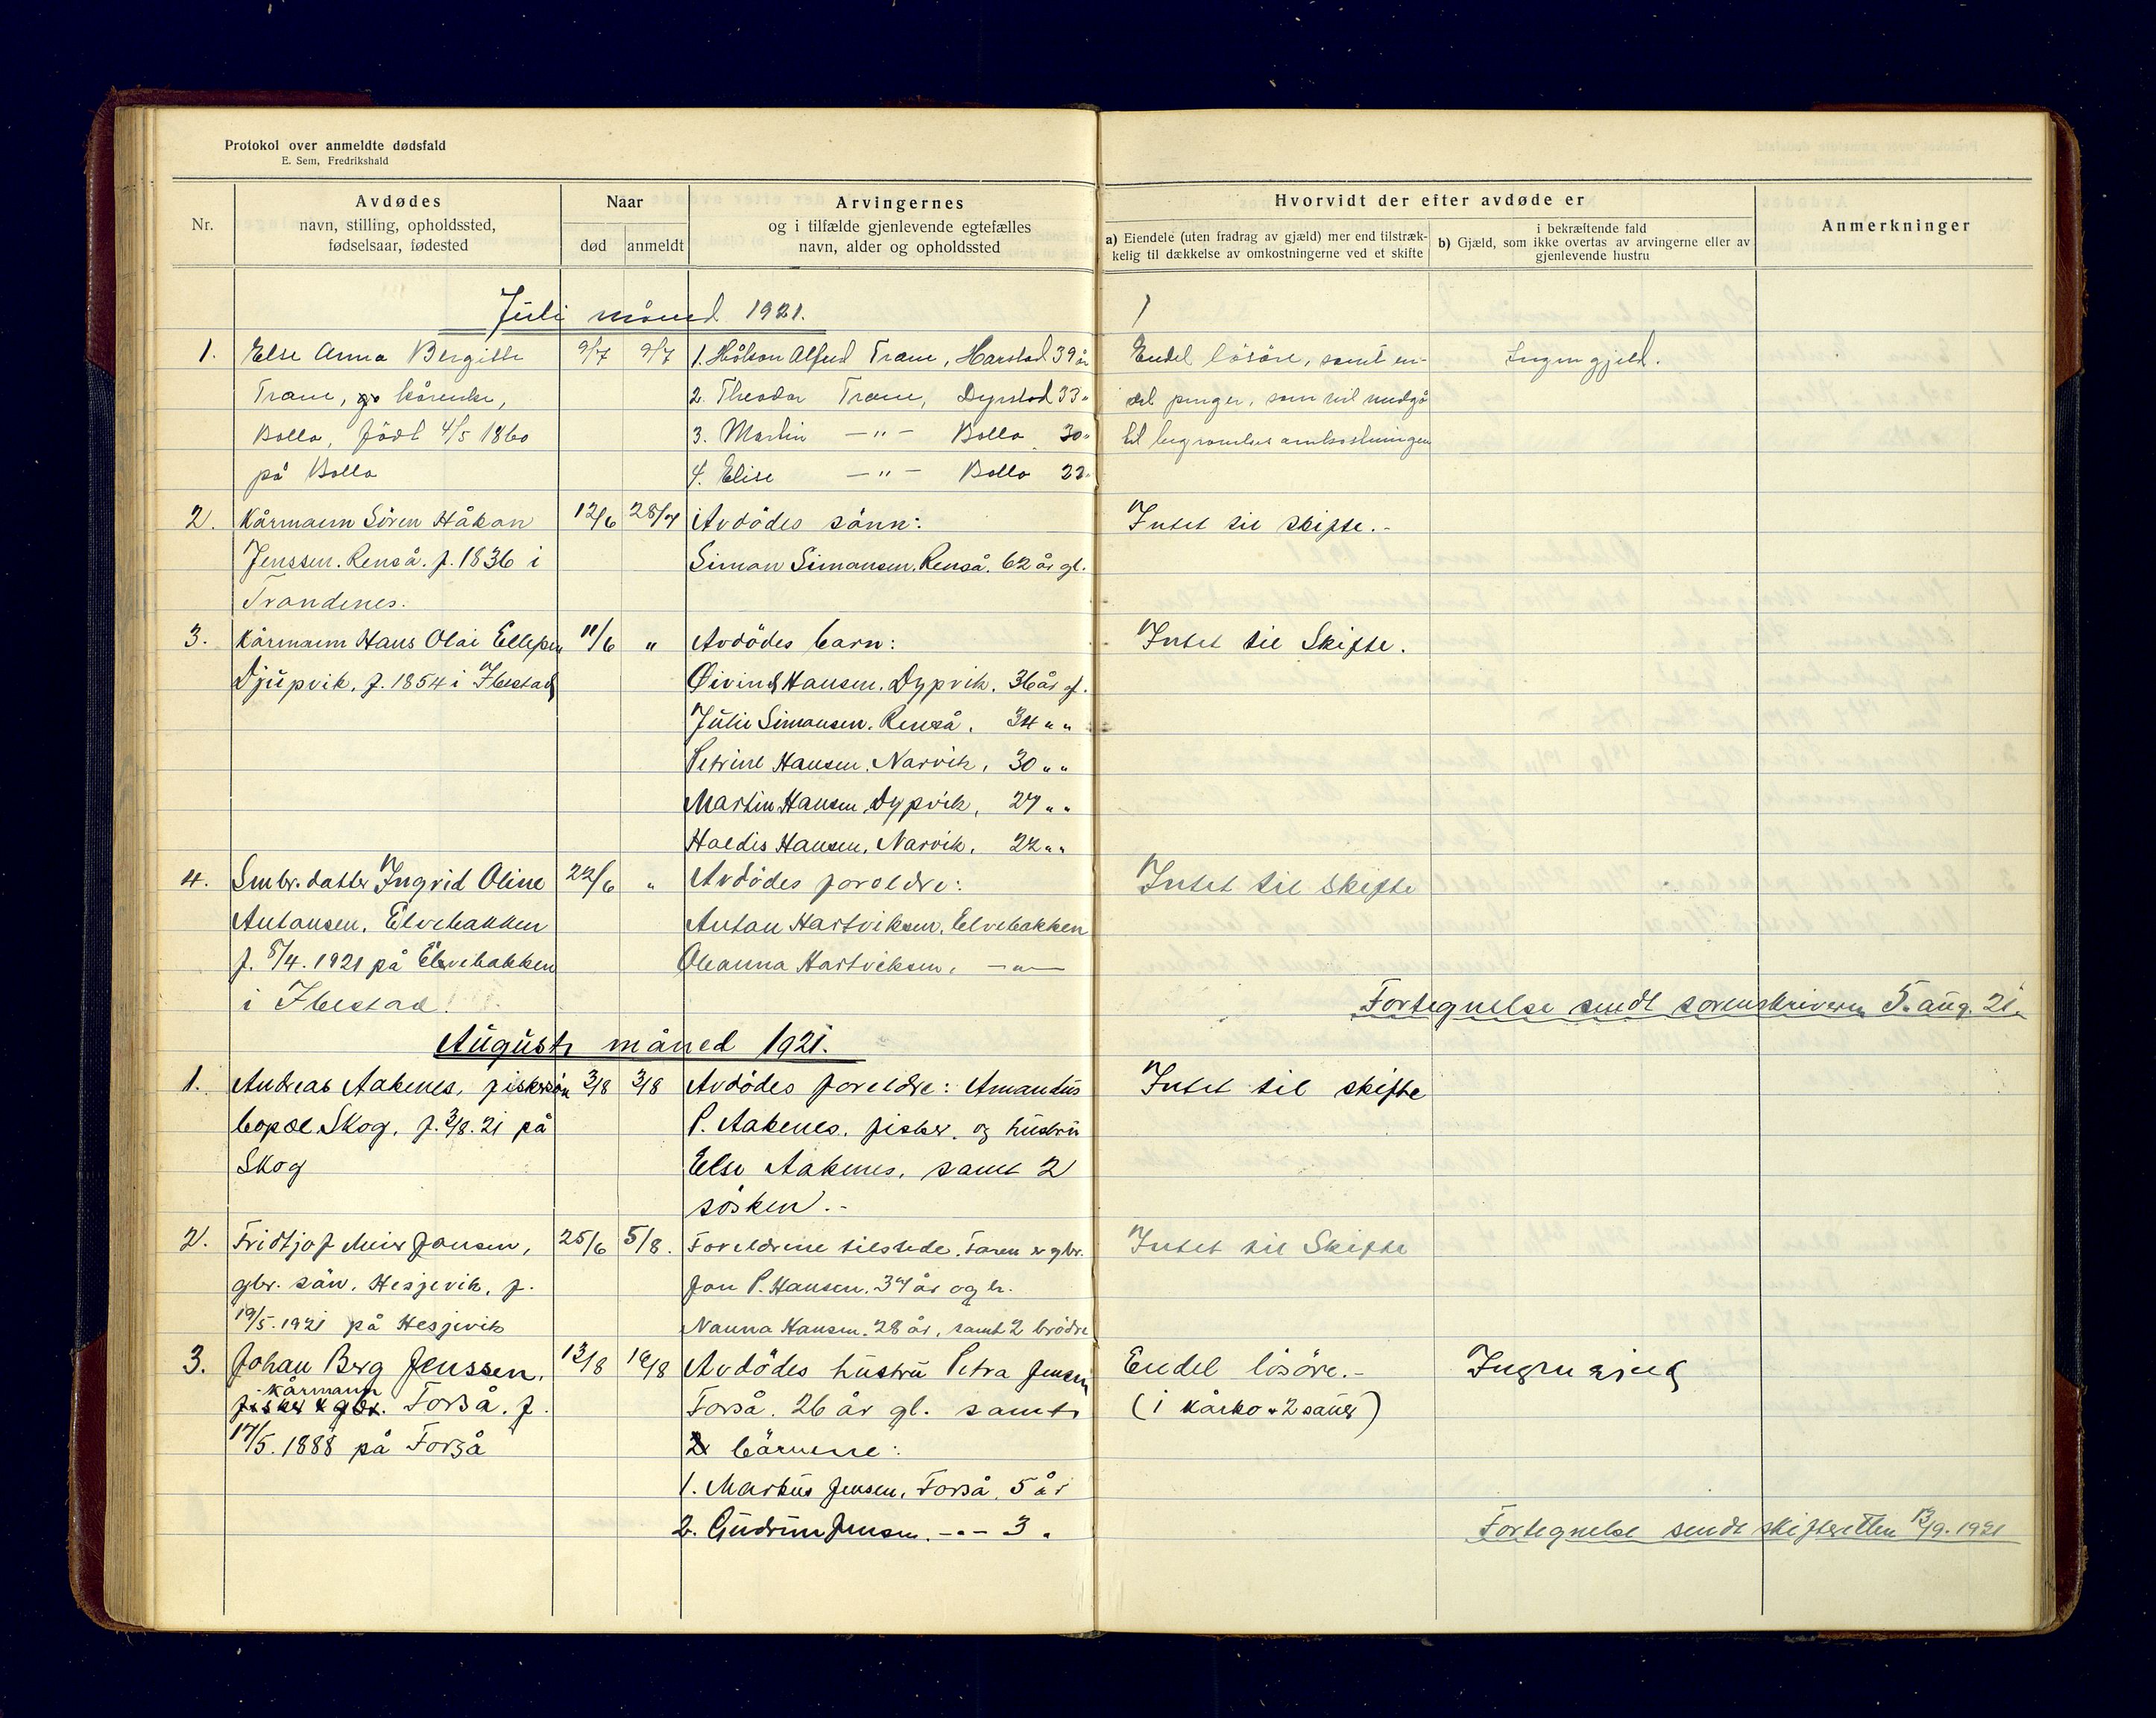 Protokol over anmeldte dødsfald
E. Sem, Fredrikshald
Nr.
Avdødes
navn, stilling, opholdssted,
fødselsaar, fødested
Naar
død
anmeldt
Arvingernes
og i tilfælde gjenlevende egtefælles
navn, alder og opholdssted
Hvorvidt der efter avdøde er
a) Eiendele (uten fradrag av gjæld) mer end tilstræk-
kelig til dækkelse av omkostningerne ved et skifte
i bekræftende fald
b) Gjæld, som ikke overtas av arvingerne eller av
gjenlevende hustru
Anmerkninger
Juli måned 1921.
1. Else Anna Bergitte 9/7 9/7 1. Håkon Alfred Trane, Harstad 39 år Endel lösöre, samt en- Ingen gjeld.
Trane, kårenke, 2. Theodor Trane, Dyrstad 33 " del penger, som vil medgå
Bolla, född 4/5 1860 3. Martin —"— Bolla 30 " til begravelsesomkostningen
på Bolla 4. Elise —"— Bolla 22 "
2. Kårmann Sören Håkan 12/6 28/7 Avdödes sönn: Intet til skifte.-
Jenssen. Renså. f. 1836 i Simon Simonsen. Renså. 62 år gl.
Trondenes.
3. Kårmann Hans Olai Ellefsen 11/6 " Avdödes barn: Intet til Skifte.
Djupvik, f. 1854 i Ibestad Øivind Hansen. Dypvik. 36 år gl.
Julie Simonsen. Renså. 34 " "
Petrine Hansen. Narvik. 30 " "
Martin Hansen Dypvik, 27 " "
Haldis Hansen, Narvik. 22 " "
4. Smbr. datter Ingrid Oline 22/6 " Avdödes foreldre: Intet til skifte
Antonsen, Elvebakken Anton Hartviksen, Elvebakken
f. 8/4. 1921 på Elvebakken Oleanna Hartviksen, —"—
i Ibestad.
Fortegnelse sendt sorenskriveren 5. aug. 21.
August måned 1921.
1. Andreas Aakenes, fiskersön 3/8 3/8 Avdödes foreldre: Amandus Intet til skifte
bopæl Skog, f. 3/8. 21 på P. Aakenes. fisker. og hustru
Skog Else Aakenes, samt 2
sösken.-
2. Fridtjof Meier Jonsen, 25/6 5/8. Foreldrene tilstede. Faren er gbr. Intet til Skifte
gbr. sön, Hesjevik, f. Jon P. Hansen. 37 år og h.
19/5. 1921 på Hesjevik Nanna Hansen. 28 år, samt 2 brödre
3. Johan Berg Jenssen, 13/8 16/8 Avdödes hustru Petra Jensen Endel lösöre.- Ingen gjeld
kårmann
fisker & gbr. Forså. f. Forså. 26 år gl. samt (1 kårko + 2 sauer)
17/5. 1888 på Forså 2 börnene:
1. Markus Jensen, Forså, 5 år
2. Gudrun Jensen. —"— 3 "
Fortegnelse sendt skifteretten 13/9. 1921